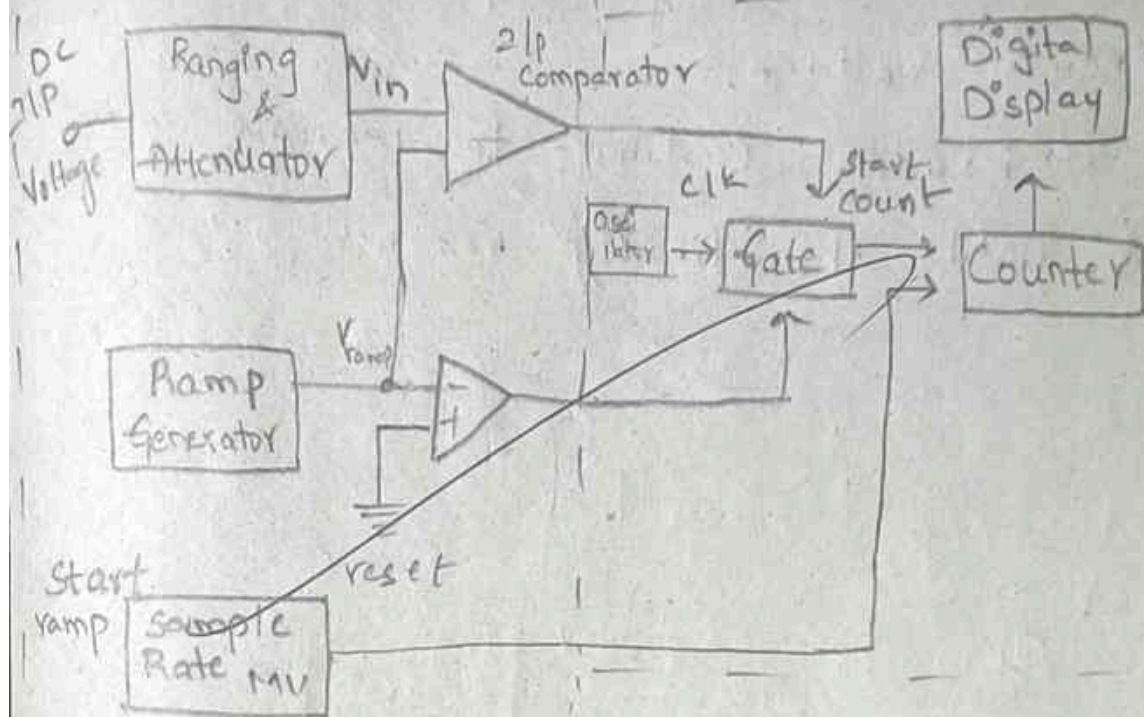 DC
I/P
Voltage
Ranging
&
Attenuator
Vin
I/p
Comparator
Digital
Display
Start
Count
Clk
Oscillator
Gate
Counter
Vramp
Ramp
Generator
-
+
reset
Start
ramp
Sample
Rate MV